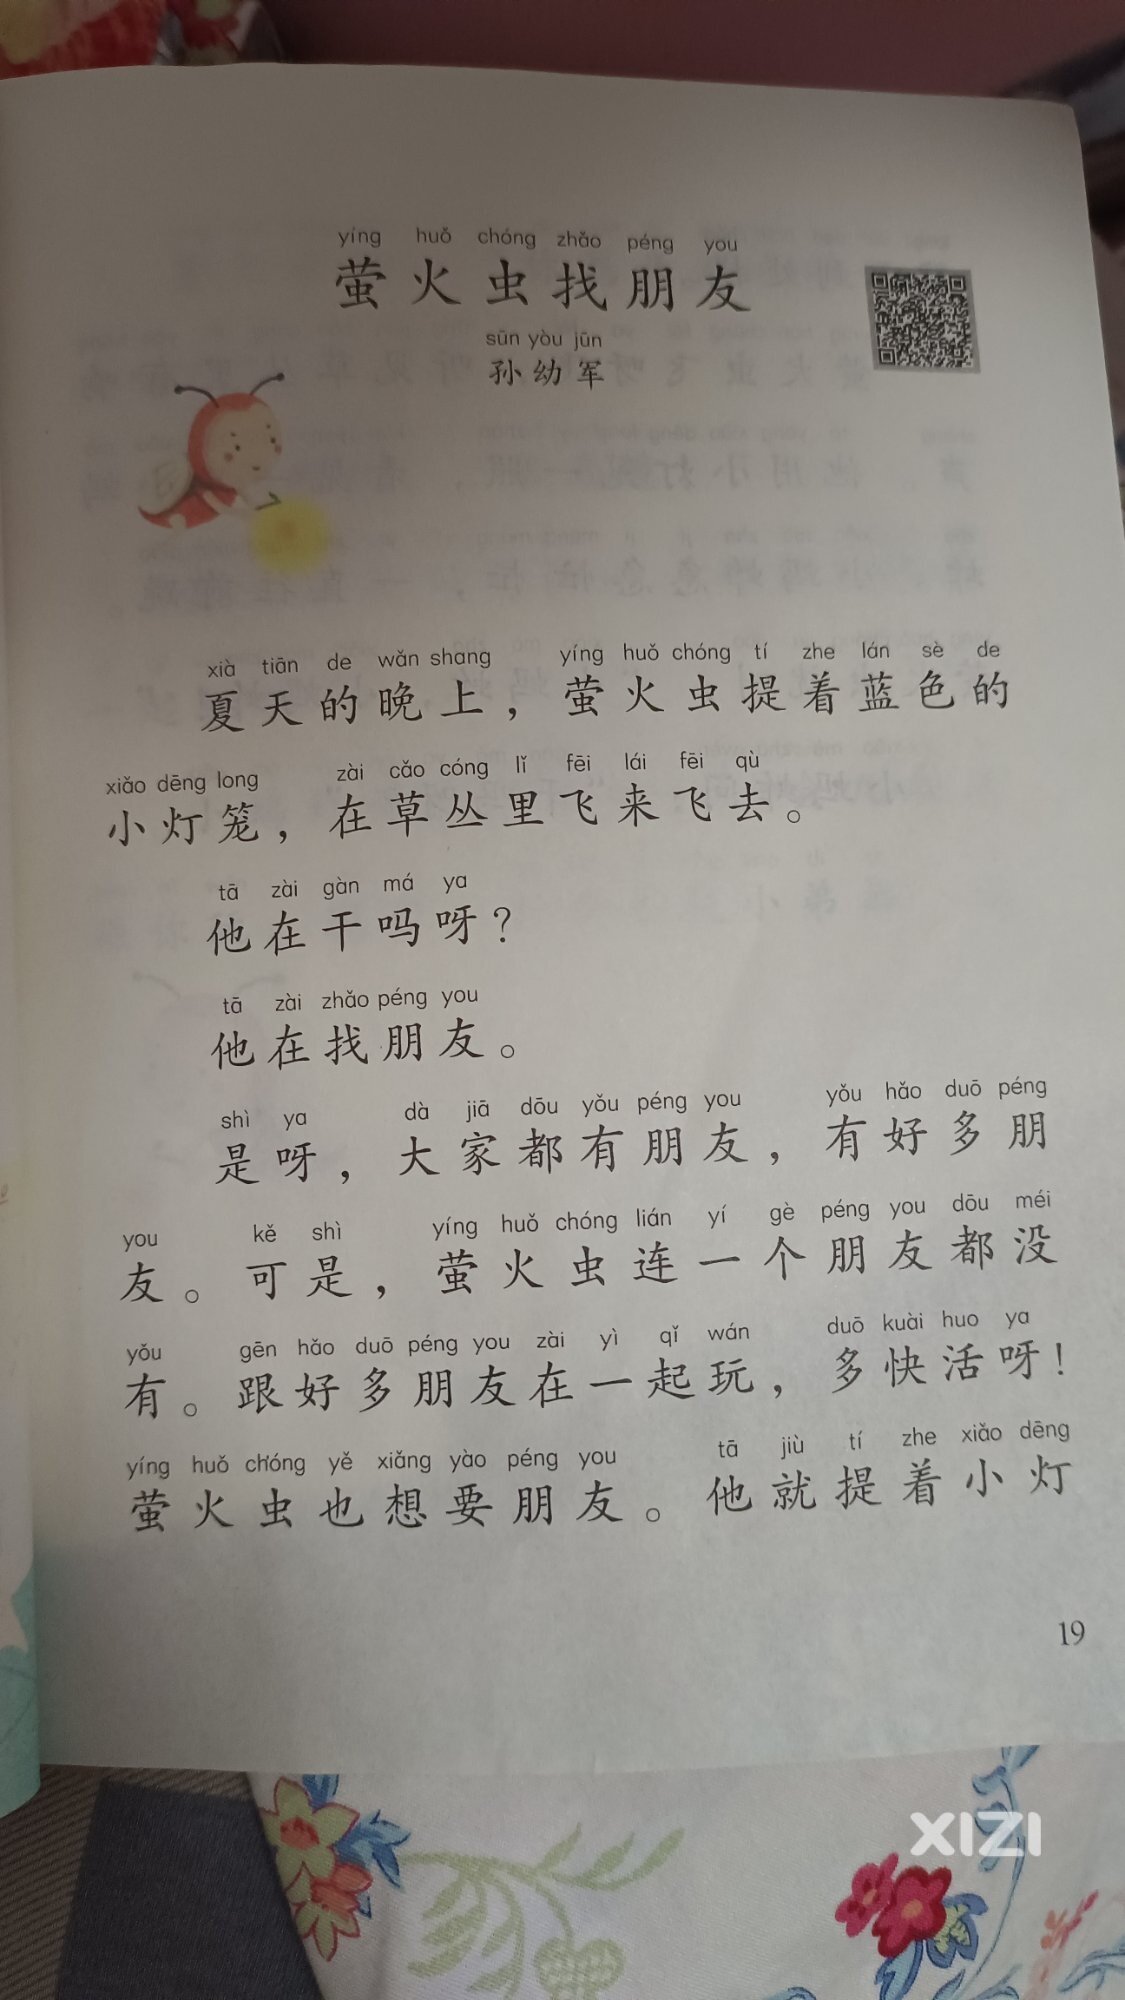 yíng huǒ chóng zhǎo péng you
萤火虫找朋友
sūn yòu jūn
孙幼军
xià tiān de wǎn shang yíng huǒ chóng tí zhe lán sè de
夏天的晚上，萤火虫提着蓝色的
xiǎo dēng long zài cǎo cóng lǐ fēi lái fēi qù
小灯笼，在草丛里飞来飞去。
tā zài gàn má ya
他在干吗呀？
tā zài zhǎo péng you
他在找朋友。
shì ya dà jiā dōu yǒu péng you yǒu hǎo duō péng
是呀，大家都有朋友，有好多朋
you kě shì yíng huǒ chóng lián yí gè péng you dōu méi
友。可是，萤火虫连一个朋友都没
yǒu gēn hǎo duō péng you zài yì qǐ wán duō kuài huo ya
有。跟好多朋友在一起玩，多快活呀！
yíng huǒ chóng yě xiǎng yào péng you tā jiù tí zhe xiǎo dēng
萤火虫也想要朋友。他就提着小灯
19
XIZI